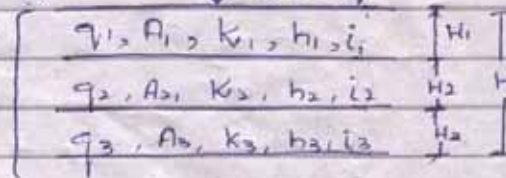 q1, A1, K1, h1, i1 H1
q2, A2, K2, h2, i2 H2 H
q3, A3, K3, h3, i3 H3